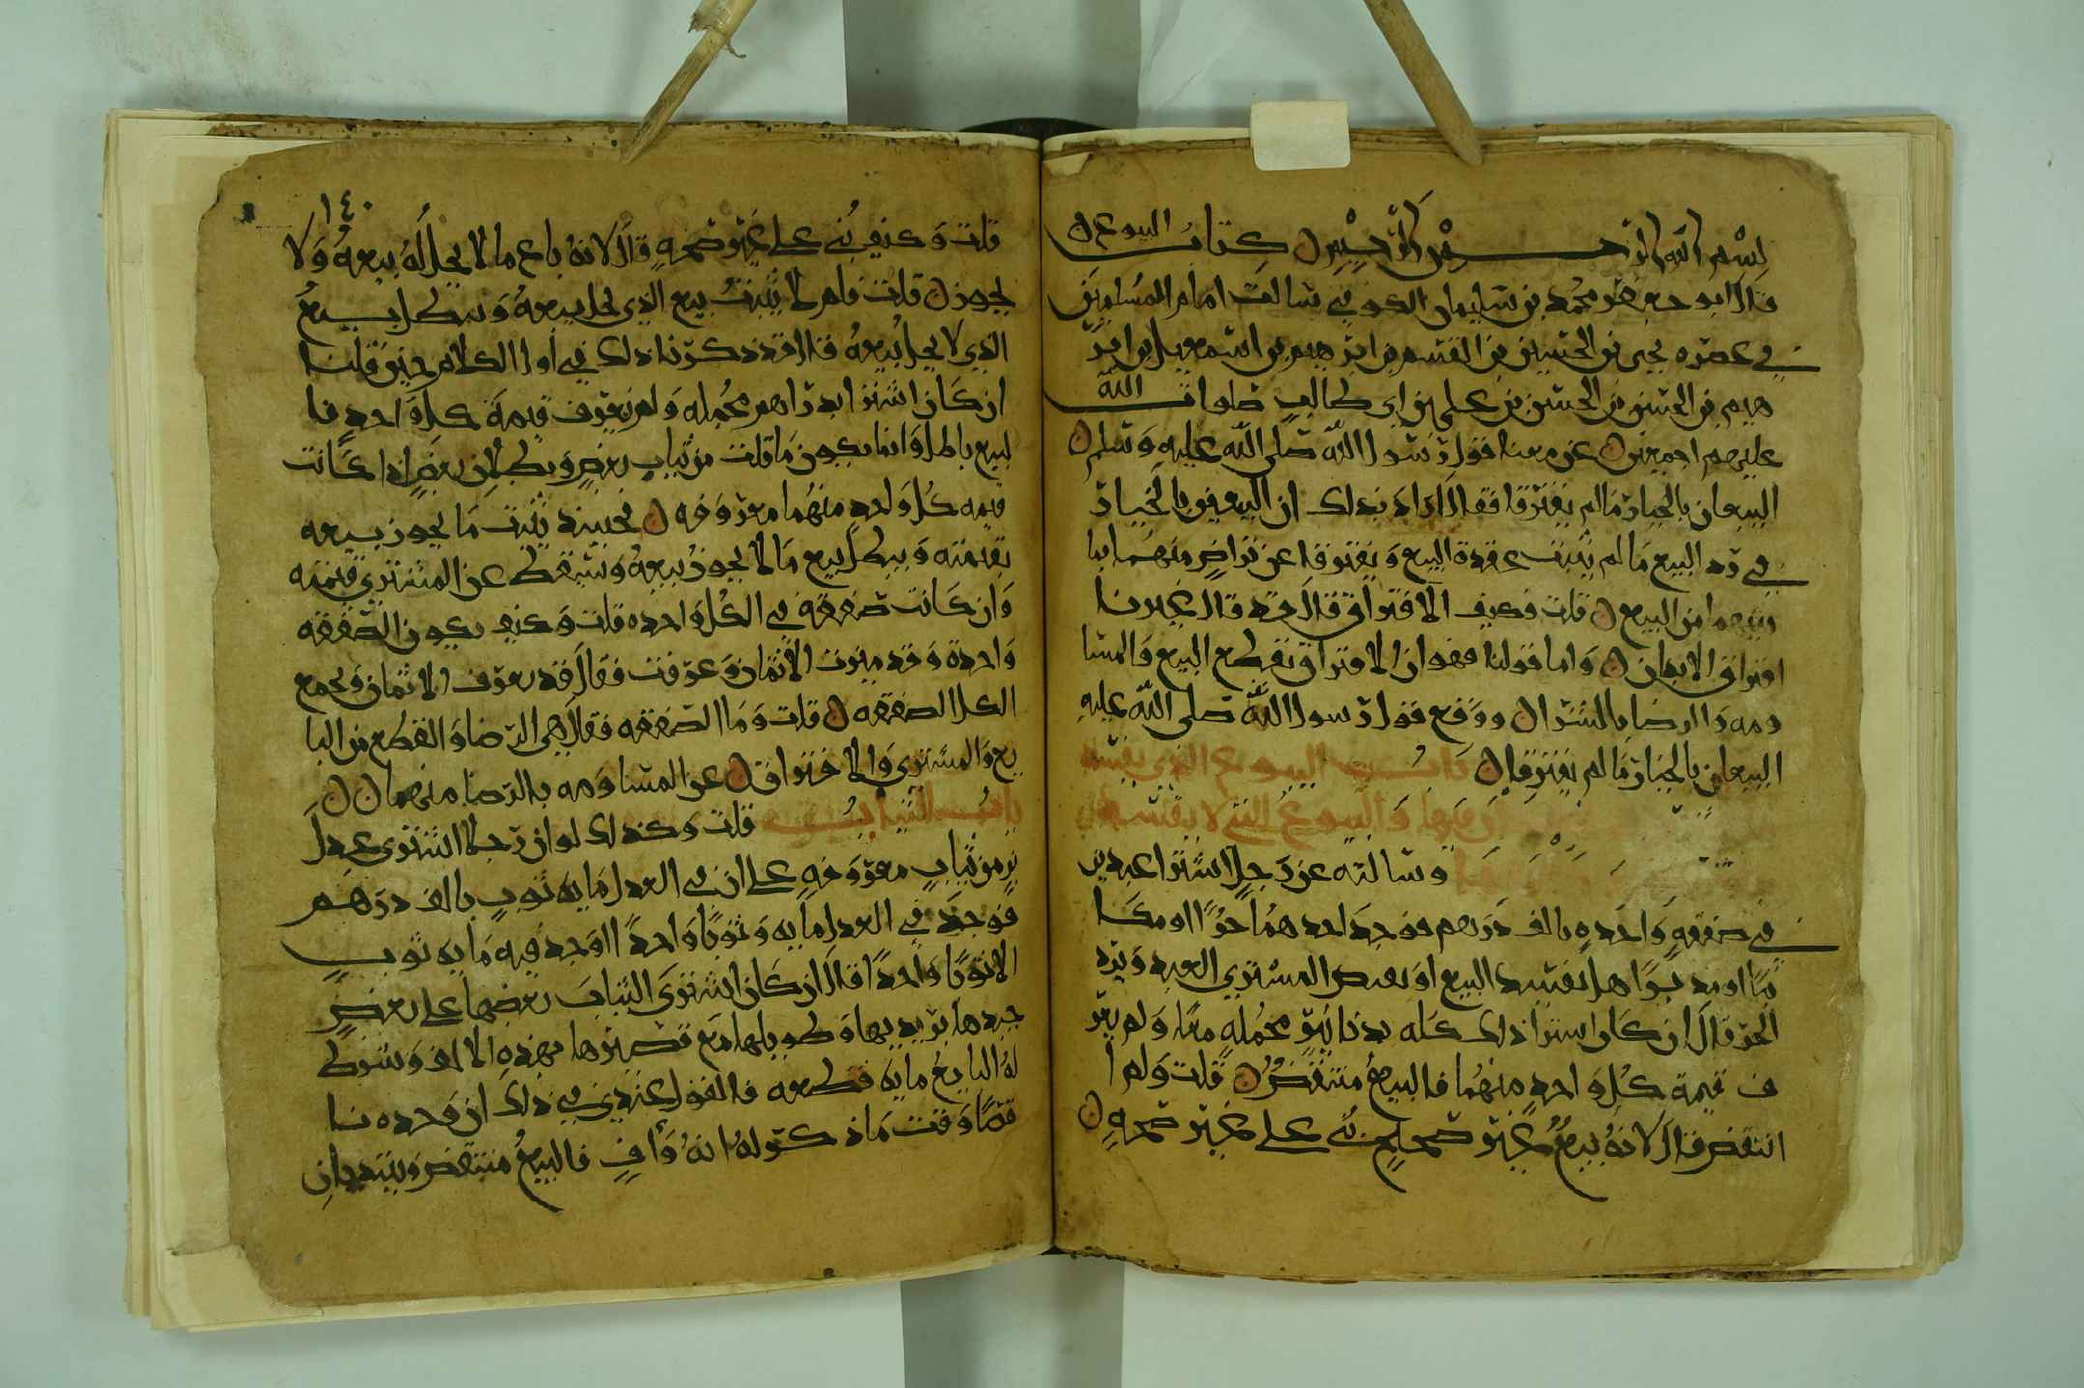 بسم الله الرحمن الرحيم كتاب البيوع
قال ابو جعفر محمد بن سليمان الكوفي سالت امام المسلمين
في عصره يحيى بن الحسين بن القسم بن ابرهيم بن اسمعيل بن ابر
هيم بن الحسن بن الحسن بن علي بن ابي طالب صلوات الله
عليهم اجمعين عن معنا قول رسول الله صلى الله عليه وسلم
البيعان بالخيار ما لم يفترقا فقال اراد بذلك ان البيعين بالخيار
في رد البيع ما لم يثبت عقدة البيع ويفترقا عن تراض منهما بما
بينهما من البيع قلت فكيف الافتراق قال قد قال غيرنا
افتراق الابدان واما قولنا فهو ان الافتراق نقطع البيع والمسا
ومه والرضا بالشرا ووقع قول رسول الله صلى الله عليه
البيعان بالخيار ما لم يفترقا باب البيوع الذي يفسد
والبيوع التي لا يفسد
وسالته عن رجل اشترا عبدين
في صفقة واحده بالف درهم فوجد احدهما حرا او مكا
تبا او مدبرا هل يفسد البيع او يقبض المشتري العبد ويرد
الحر قال ان كان اشترا ذلك كله بدنانير محمله معا ولم يعر
ف قيمة كل واحد منهما فالبيع منتقض قلت ولم ا
انتقض قال لانه بيع غير صحيح بني على غير صحه
١٤٠
قلت وكيف بني على غير صحه قال لانه باع ما لا يحل له بيعه ولا
يجوز قلت فلم لا يثبت بيع الذي يحل بيعه ويبطل بيع
الذي لا يحل بيعه قال قد ذكرنا ذلك في اول الكلام حين قلنا
ان كان اشترا بدراهم محمله ولم يعرف قيمة كل واحد فا
لبيع باطل وانما يكون ما قلت من ثبات بعض وبطلان بعض اذا كانت
قيمه كل واحد منهما معروفه فحينيذ يثبت ما يجوز بيعه
بقيمته ويبطل بيع ما لا يجوز بيعه ويسقط عن المشتري قيمته
وان كانت صفقه في الكل واحده قلت وكيف يكون الصفقه
واحدة وقد ميزت الاثمان وعرفت فقال قد يعرف الاثمان ويجمع
الكل الصفقه قلت وما الصفقه فقال هي الرضا والقطع من البا
يع والمشتري والافتراق عن المساومه بالرضا منهما
باب الثياب قلت وكذلك لو ان رجلا اشترى عدل
بز من ثياب معروفه على ان في العدل مايه ثوب بالف درهم
فوجد في العدل مايه وثوبا واحدا او وجد فيه مايه ثوب
الا ثوبا واحدا قال ان كان اشترى الثياب بعضها على بعض
جيدها برديها وطويلها مع قصيرها بهذه الالف وشرط
له البايع مايه قطعه فالقول عندي في ذلك ان وحده نا
قصا وقت ما ذكر له انه واف فالبيع منتقض ويبتديان